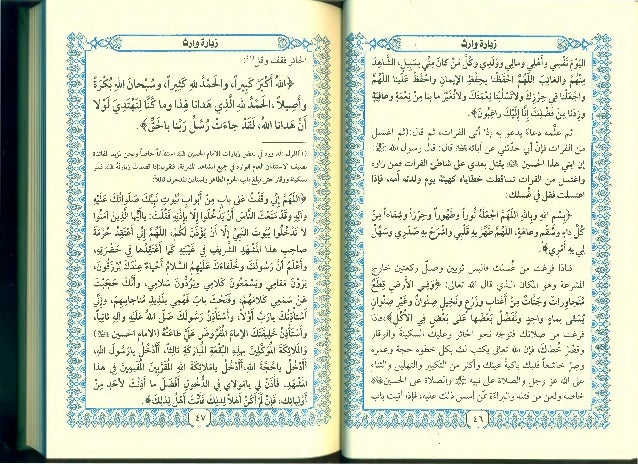 زيارة وارث
اليَوْمَ نَفْسِي وَأَهْلِي وَمالِي وَوَلَدِي وَكُلَّ مَنْ كانَ مِنِّي بِسَبِيلٍ، الشّاهِدَ
مِنْهُمْ وَالغائِبَ، اللّهُمَّ احْفَظْنا بِحِفْظِ الإِيمانِ وَاحْفَظْ عَلَيْنا، اللّهُمَّ
اجْعَلْنا فِي حِرْزِكَ وَلاتَسْلُبْنا نِعْمَتَكَ وَلاتُغَيِّرْ ما بِنا مِنْ نِعْمَةٍ وَعافِيَةٍ
وَزِدْنا مِنْ فَضْلِكَ إِنّا إِلَيْكَ راغِبُونَ﴾.
ثم علّمه دعاءً يدعو به إذا أتى الفرات، ثم قال: (ثم اغتسل
من الفرات فإنّ أبي حدّثني عن آبائه قال: قال رسول الله:
إن ابني هذا الحسين يقتل بعدي على شاطئ الفرات فمن زاره
واغتسل من الفرات تساقطت خطاياه كهيئة يوم ولدته أمه، فإذا
اغتسلت فقل في غسلك:
﴿بِسْمِ اللهِ وَبِاللهِ اللّهُمَّ اجْعَلْهُ نُوراً وَطَهُوراً وَحِرْزاً وَشِفاءاً مِنْ
كُلِّ داءٍ وَسُقْمٍ وَعاهَةٍ، اللّهُمَّ طَهِّرْ بِهِ قَلْبِي وَاشْرَحْ بِهِ صَدْرِي وَسَهِّلْ
لِي بِهِ أَمْرِي﴾.
فإذا فرغت من غسلك فالبس ثوبين وصلّ ركعتين خارج
المشرعة وهو المكان الذي قال الله تعالى: ﴿وَفِي الأَرْضِ قِطَعٌ
مُتَجاوِراتٌ وَجَنّاتٌ مِنْ أَعْنابٍ وَزَرْعٍ وَنَخِيلٍ صِنْوانٌ وَغَيْرُ صِنْوانٍ
يُسْقى بِماءٍ واحِدٍ وَنُفَضِّلُ بَعْضَها عَلى بَعْضٍ فِي الأُكُلِ﴾، فإذا
فرغت من صلاتك فتوجه نحو الحائر وعليك السكينة والوقار
وقصّر خطاك، فإن الله تعالى يكتب لك بكل خطوة حجة وعمرة
وصر خاشعاً قلبك باكية عينك وأكثر من التكبير والتهليل والثناء
على الله عز وجل والصلاة على نبيه والصلاة على الحسين
خاصة ولعن من قتله والبراءة ممّن أسس ذلك عليه، فإذا أتيت باب
٤٦
زيارة وارث
الحائر فقف وقل(١):
﴿اللهُ أَكْبَرُ كَبِيراً، وَالحَمْدُ للهِ كَثِيراً، وَسُبْحانَ اللهِ بُكْرَةً
وَأَصِيلاً، الحَمْدُ للهِ الَّذِي هَدانا لِهذا وَما كُنّا لِنَهْتَدِيَ لَوْلا
أَنْ هَدانا اللهُ، لَقَدْ جاءَتْ رُسُلُ رَبِّنا بِالحَقِّ﴾.
﴿اللّهُمَّ إِنِّي وَقَفْتُ عَلى بابٍ مِنْ أَبْوابِ بُيُوتِ نَبِيِّكَ صَلَواتُكَ عَلَيْهِ
وَآلِهِ وَقَدْ مَنَعْتَ النّاسَ أَنْ يَدْخُلُوا إِلاّ بِإِذْنِهِ فَقُلْتَ: يا أَيُّها الَّذِينَ آمَنُوا
لا تَدْخُلُوا بُيُوتَ النَّبِيِّ إِلاّ أَنْ يُؤْذَنَ لَكُمْ، اللّهُمَّ إِنِّي أَعْتَقِدُ حُرْمَةَ
صاحِبِ هذا المَشْهَدِ الشَّرِيفِ فِي غَيْبَتِهِ كَما أَعْتَقِدُها فِي حَضْرَتِهِ،
وَأَعْلَمُ أَنَّ رَسُولَكَ وَخُلَفاءَكَ عَلَيْهِمُ السَّلامُ أَحْياءٌ عِنْدَكَ يُرْزَقُونَ،
يَرَوْنَ مَقامِي وَيَسْمَعُونَ كَلامِي وَيَرُدُّونَ سَلامِي، وَأَنَّكَ حَجَبْتَ
عَنْ سَمْعِي كَلامَهُمْ، وَفَتَحْتَ بابَ فَهْمِي بِلَذِيذِ مُناجاتِهِمْ، وَإِنِّي
أَسْتَأْذِنُكَ يارَبِّ أَوَّلاً، وَأَسْتَأْذِنُ رَسُولَكَ صَلّى اللهُ عَلَيْهِ وَآلِهِ ثانِياً،
وَأَسْتَأْذِنُ خَلِيفَتَكَ الإِمامَ المَفْرُوضَ عَلَيَّ طاعَتُهُ (الامام الحسين)
وَالمَلائِكَةَ المُوَكَّلِينَ بِهذِهِ البُقْعَةِ المُبارَكَةِ ثالِثاً، أَأَدْخُلُ يارَسُولَ اللهِ،
أَأَدْخُلُ ياحُجَّةَ اللهِ، أَأَدْخُلُ يامَلائِكَةَ اللهِ المُقَرَّبِينَ المُقِيمِينَ فِي هذا
المَشْهَدِ، فَأْذَنْ لِي يامَوْلايَ فِي الدُّخُولِ أَفْضَلَ ما أَذِنْتَ لأَحَدٍ مِنْ
أَوْلِيائِكَ، فَإِنْ لَمْ أَكُنْ أَهْلاً لِذلِكَ فَأَنْتَ أَهْلٌ لِذلِكَ﴾.
٤٧